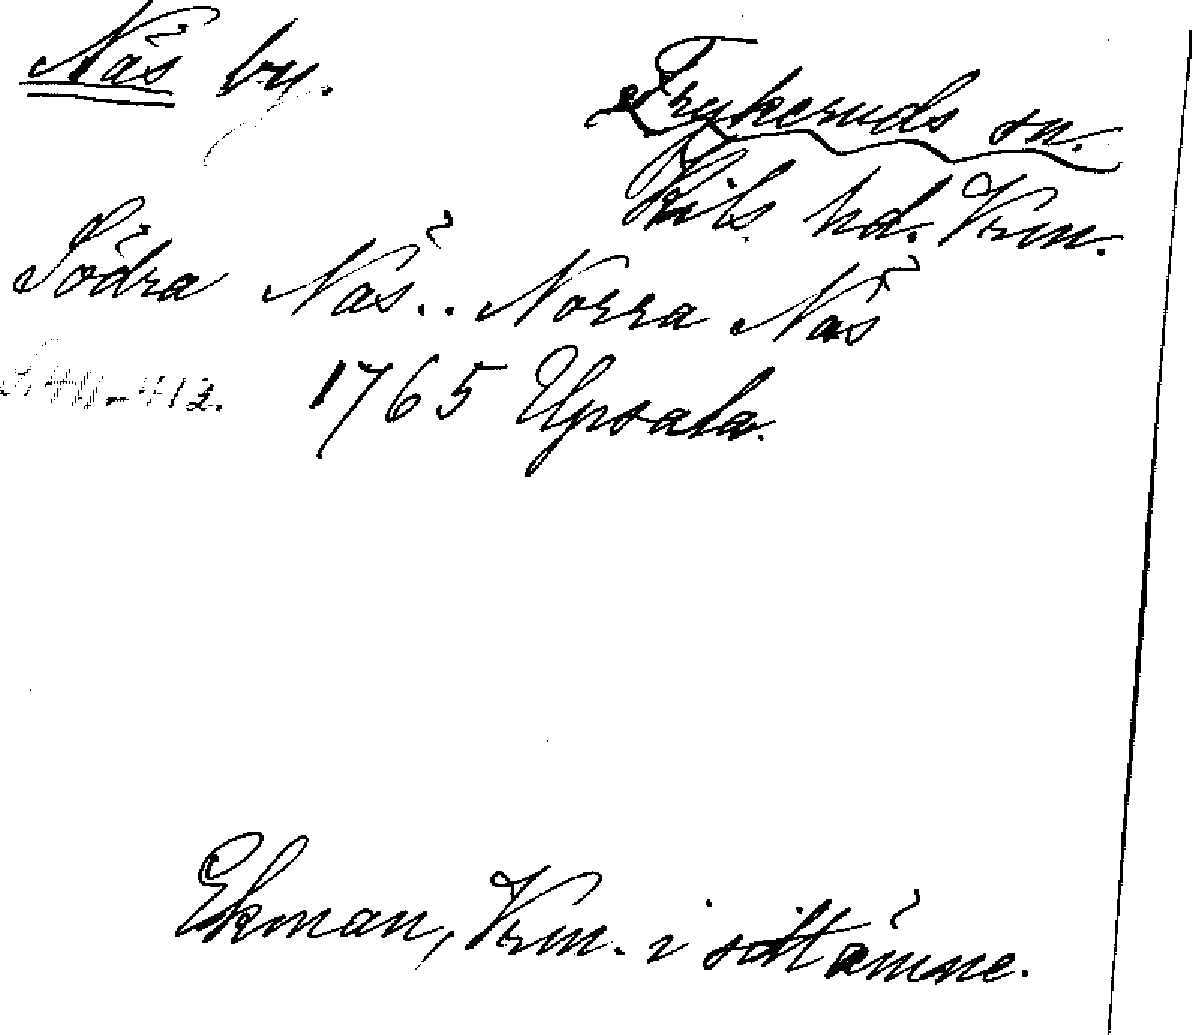 Näs by.
Frykeruds sn.
Kils hd. Vrm.
Södra Näs.. Norra Näs
S. 411-412. 1765 Upsala.
Ekman, Vrm. i sitt ämne.